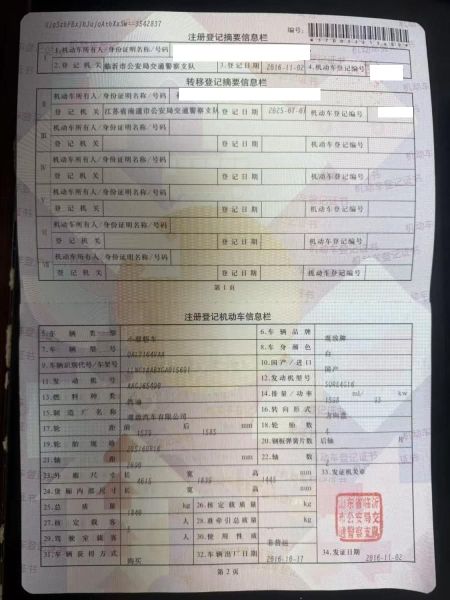 注册登记摘要信息栏
编号:
I
1.机动车所有人/身份证明名称/号码
2.登记机关 临沂市公安局交通警察支队 3.登记日期 2016-11-02 4.机动车登记编号
转移登记摘要信息栏
II 机动车所有人/身份证明名称/号码
登记机关 江苏省南通市公安局交通警察支队 登记日期 2025-07-07 机动车登记编号
III 机动车所有人/身份证明名称/号码
登记机关 登记日期 机动车登记编号
IV 机动车所有人/身份证明名称/号码
登记机关 登记日期 机动车登记编号
V 机动车所有人/身份证明名称/号码
登记机关 登记日期 机动车登记编号
VI 机动车所有人/身份证明名称/号码
登记机关 登记日期 机动车登记编号
VII 机动车所有人/身份证明名称/号码
登记机关 登记日期 机动车登记编号
第1页
注册登记机动车信息栏
5.车辆类型 小型轿车 6.车辆品牌
7.车辆型号 8.车身颜色 白
9.车辆识别代号/车架号 10.国产/进口 国产
11.发动机号 12.发动机型号
13.燃料种类 汽油 14.排量/功率 1598 ml/ kw
15.制造厂名称 观致汽车有限公司 16.转向形式 方向盘
17.轮距 前 后 1585 mm 18.轮胎数 4
19.轮胎规格 205/60R16 20.钢板弹簧片数 后轴 片
21.轴距 2690 mm 22.轴数
23.外廓尺寸 长 4615 宽 1839 高 1445 mm 33.发证机关章
24.货厢内部尺寸 长 宽 高 mm
25.总质量 kg 26.核定载质量 kg
27.核定载客 人 28.准牵引总质量 kg
29.驾驶室载客 人 30.使用性质 非营运
31.车辆获得方式 购买 32.车辆出厂日期 2016-10-17 34.发证日期 2016-11-02
山东省临沂
市公安局交
通警察支队
第2页